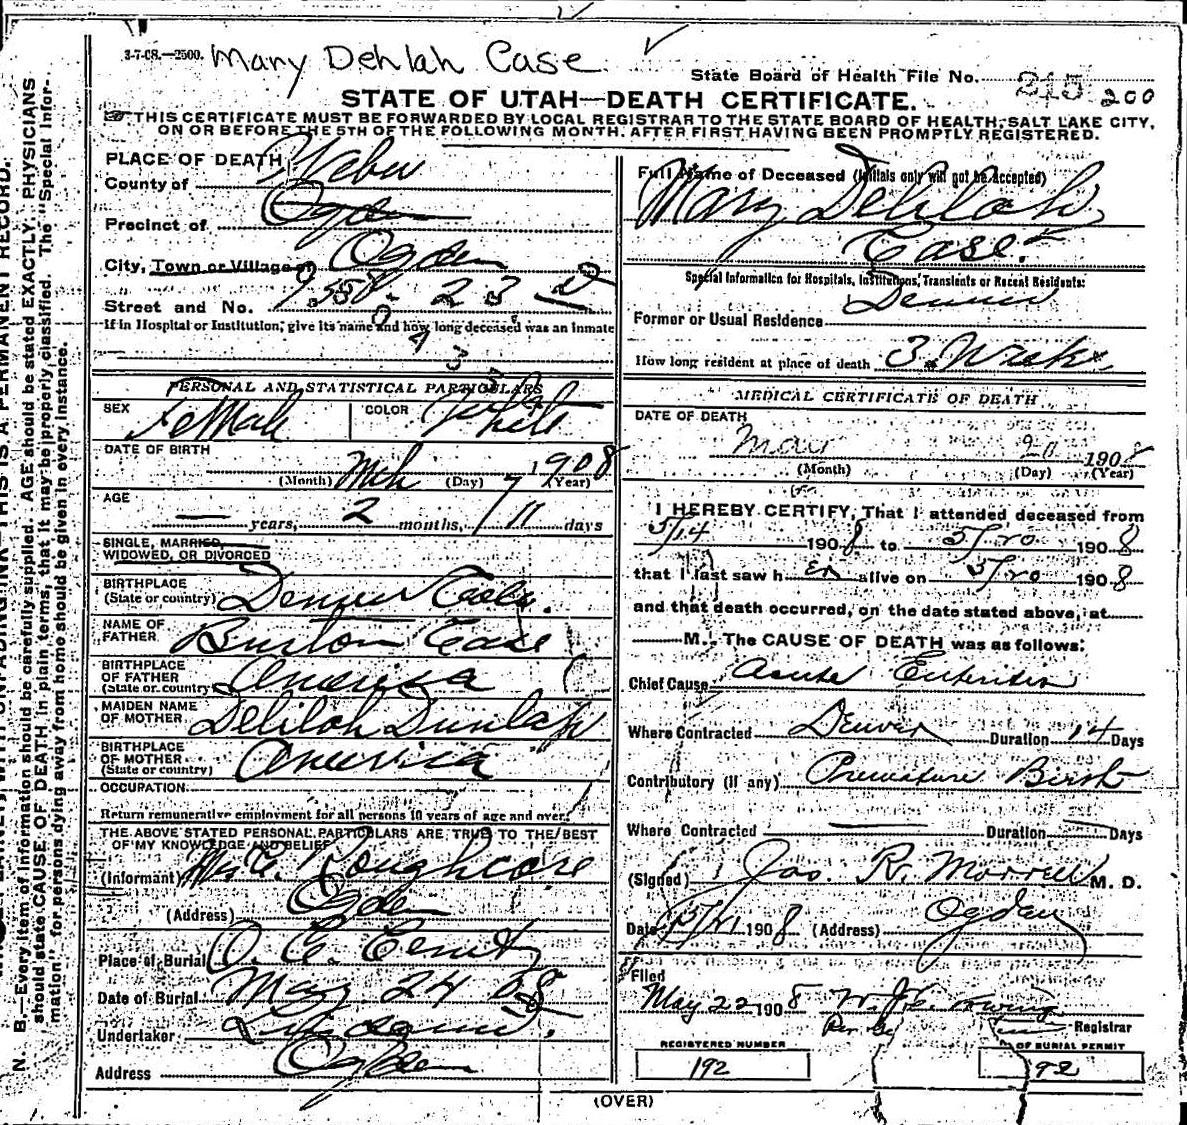 3-7-08.—2500. Mary Dehlah Case
State Board of Health File No. 215 200
STATE OF UTAH—DEATH CERTIFICATE.
THIS CERTIFICATE MUST BE FORWARDED BY LOCAL REGISTRAR TO THE STATE BOARD OF HEALTH, SALT LAKE CITY,
ON OR BEFORE THE 5TH OF THE FOLLOWING MONTH. AFTER FIRST HAVING BEEN PROMPTLY REGISTERED.
PLACE OF DEATH
County of Weber
Precinct of Ogden
City, Town or Village of Ogden
Street and No. 958 - 23 d
If in Hospital or Institution, give its name and how long deceased was an inmate
PERSONAL AND STATISTICAL PARTICULARS
SEX Female COLOR White
DATE OF BIRTH
Mch 7 1908
(Month) (Day) (Year)
AGE
— years, 2 months, 11 days
SINGLE, MARRIED,
WIDOWED, OR DIVORCED
BIRTHPLACE
(State or country) Denver Colo.
NAME OF
FATHER Burton Case
BIRTHPLACE
OF FATHER
(State or country) America
MAIDEN NAME
OF MOTHER Delilah Dunlap
BIRTHPLACE
OF MOTHER
(State or country) America
OCCUPATION
Return remunerative employment for all persons 10 years of age and over.
THE ABOVE STATED PERSONAL PARTICULARS ARE TRUE TO THE BEST
OF MY KNOWLEDGE AND BELIEF
(Informant)
(Address) Ogden
Place of Burial
Date of Burial May 24 08
Undertaker
Address Ogden
Full Name of Deceased (Initials only will not be accepted)
Mary Delilah
Case.
Special Information for Hospitals, Institutions, Transients or Recent Residents:
Former or Usual Residence Denver
How long resident at place of death 3 Weeks
MEDICAL CERTIFICATE OF DEATH
DATE OF DEATH
May 20 1908
(Month) (Day) (Year)
I HEREBY CERTIFY, That I attended deceased from
5/14 1908 to 5/20 1908
that I last saw her alive on 5/20 1908
and that death occurred, on the date stated above, at
M. The CAUSE OF DEATH was as follows:
Chief Cause Acute Enteritis
Where Contracted Denver Duration 14 Days
Contributory (if any) Premature Birth
Where Contracted — Duration — Days
(Signed) Jos. R. Morrell M. D.
Date 5/21 1908 (Address) Ogden
Filed
May 22 1908
Registrar
REGISTERED NUMBER
192
OF BURIAL PERMIT
92
(OVER)
N. B.—Every item of information should be carefully supplied. AGE should be stated EXACTLY. PHYSICIANS
should state CAUSE OF DEATH in plain terms, that it may be properly classified. The "Special Infor-
mation" for persons dying away from home should be given in every instance.